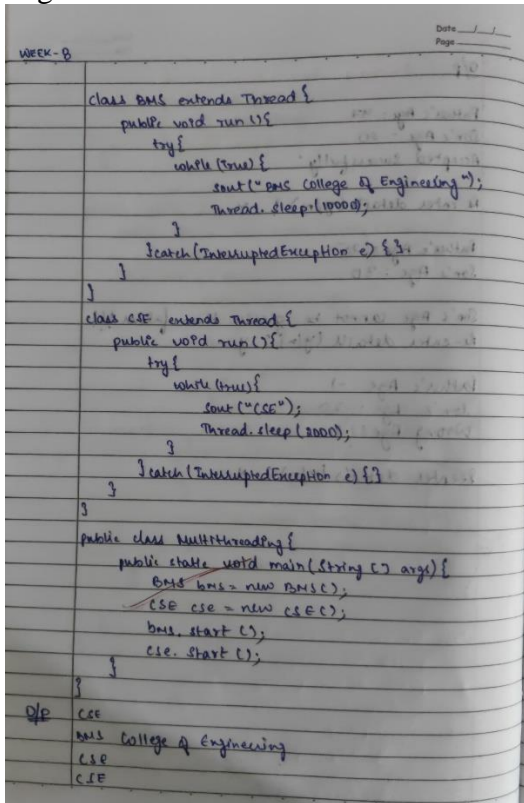 Date __/__/__
Page ____
WEEK-8
class BMS extends Thread {
public void run () {
try {
while (true) {
sout ("BMS College of Engineering");
Thread.sleep (10000);
}
} catch (InterruptedException e) { }
}
}
class CSE extends Thread {
public void run () {
try {
while (true) {
sout ("CSE");
Thread.sleep (2000);
}
} catch (InterruptedException e) { }
}
}
public class Multithreading {
public static void main (String [] args) {
BMS bms = new BMS();
CSE cse = new CSE();
bms.start ();
cse.start ();
}
}
O/P CSE
BMS College of Engineering
CSE
CSE